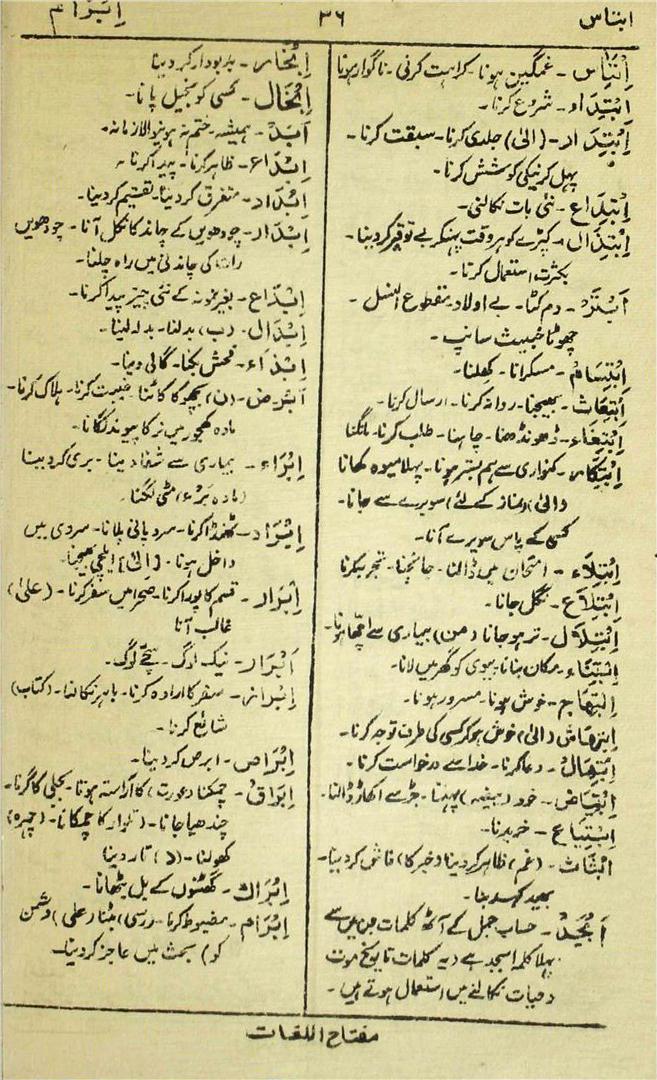 ابتاس
۳۶
اِبْرَام
اِبْتَاس - غمگین ہونا - کراہت کرنی - ناگوار ہونا
اِبْتِدَاء - شروع کرنا -
اِبْتِدَار - (الیٰ) جلدی کرنا - سبقت کرنا -
پہل کرنیکی کوشش کرنا -
اِبْتِدَاع - نئی بات نکالنی -
اِبْتِذَال - کپڑے کو ہر وقت پہنکر بے توقیر کردینا -
بکثرت استعمال کرنا -
اَبْتَرْ - دم کٹا - بے اولاد - مقطوع النسل -
چھوٹا خبیث سانپ -
اِبْتِسَامْ - مسکرانا - کھلنا -
اِبْتِعَاث - بھیجنا - روانہ کرنا - ارسال کرنا -
اِبْتِغَاء - ڈھونڈھنا - چاہنا - طلب کرنا - مانگنا
اِبْتِکَار - کنواری سے ہم بستر ہونا - پہلا میوہ کھانا
(الیٰ) (نماز کے لئے) سویرے سے جانا -
کسی کے پاس سویرے آنا -
اِبْتِلَاء - امتحان میں ڈالنا - جانچنا - تجربہ کرنا
اِبْتِلَاع - نگل جانا -
اِبْتِلَال - تر ہو جانا (من) بیماری سے اچھا ہونا -
اِبْتِنَاء - مکان بنانا - بیوی کو گھر میں لانا -
اِبْتِهَاج - خوش ہونا - مسرور ہونا -
اِبْتِهَاش (الیٰ) خوش ہو کر کسی کی طرف توجہ کرنا -
اِبْتِهَالْ - دعا کرنا - خدا سے درخواست کرنا -
اِبْتِيَاض - خود (بیضہ) پہننا - جڑ سے اکھاڑ ڈالنا -
اِبْتِيَاع - خریدنا -
اَبْثَاث - (غم) ظاہر کردینا (خبر کا) فاش کردینا -
بھید کہہ دینا -
اَبْجَدْ - حساب جمل کے آٹھ کلمات جن میں سے
پہلا کلمہ ابجد ہے (یہ کلمات تاریخ موت
و حیات نکالنے میں استعمال ہوتے ہیں -
اِبْخَار - بدبودار کردینا
اِبْخَال - کسی کو بخیل پانا -
اَبَدْ - ہمیشہ - ختم نہ ہونیوالا زمانہ -
اِبْدَاء - ظاہر کرنا - پیدا کرنا -
اِبْدَاد - متفرق کردینا - تقسیم کردینا -
اِبْدَار - چودھویں کے چاند کا نکل آنا - چودھویں
رات کی چاندنی میں راہ چلنا -
اِبْدَاع - بغیر نمونہ کے نئی چیز پیدا کرنا -
اِبْدَال - (ب) بدلنا - بدلہ لینا -
اِبْذَاء - فحش بکنا - گالی دینا -
(ن) بچھو کا کاٹنا - غیبت کرنا - ہلاک کرنا -
مادہ کھجور میں نر کا پیوند لگانا -
اِبْرَاء - بیماری سے شفا دینا - بری کردینا
(مادہ بَرْء) مٹی لگنا -
اِبْرَاد - ٹھنڈا کرنا - سرد پانی پلانا - سردی میں
داخل ہونا - [الیٰ] ایلچی بھیجنا -
اِبْرَار - قسم کا پورا کرنا - صحرا میں سفر کرنا - (علیٰ)
غالب آنا
اَبْرَار - نیک لوگ - سچے لوگ -
اِبْرَاز - سفر کا ارادہ کرنا - باہر نکالنا - (کتاب)
شائع کرنا -
اِبْرَاص - ابرص کردینا -
اِبْرَاق - چمکنا (عورت) کا آراستہ ہونا - بجلی کا گرنا -
چندھیا جانا - (تلوار کا چمکانا - (چہرہ)
کھولنا - تار دینا
اِبْرَاك - گھٹنوں کے بل بٹھانا -
اِبْرَام - مضبوط کرنا - (رسی) بٹنا (علی) (دشمن
کو) بحث میں عاجز کردینا -
مفتاح اللغات